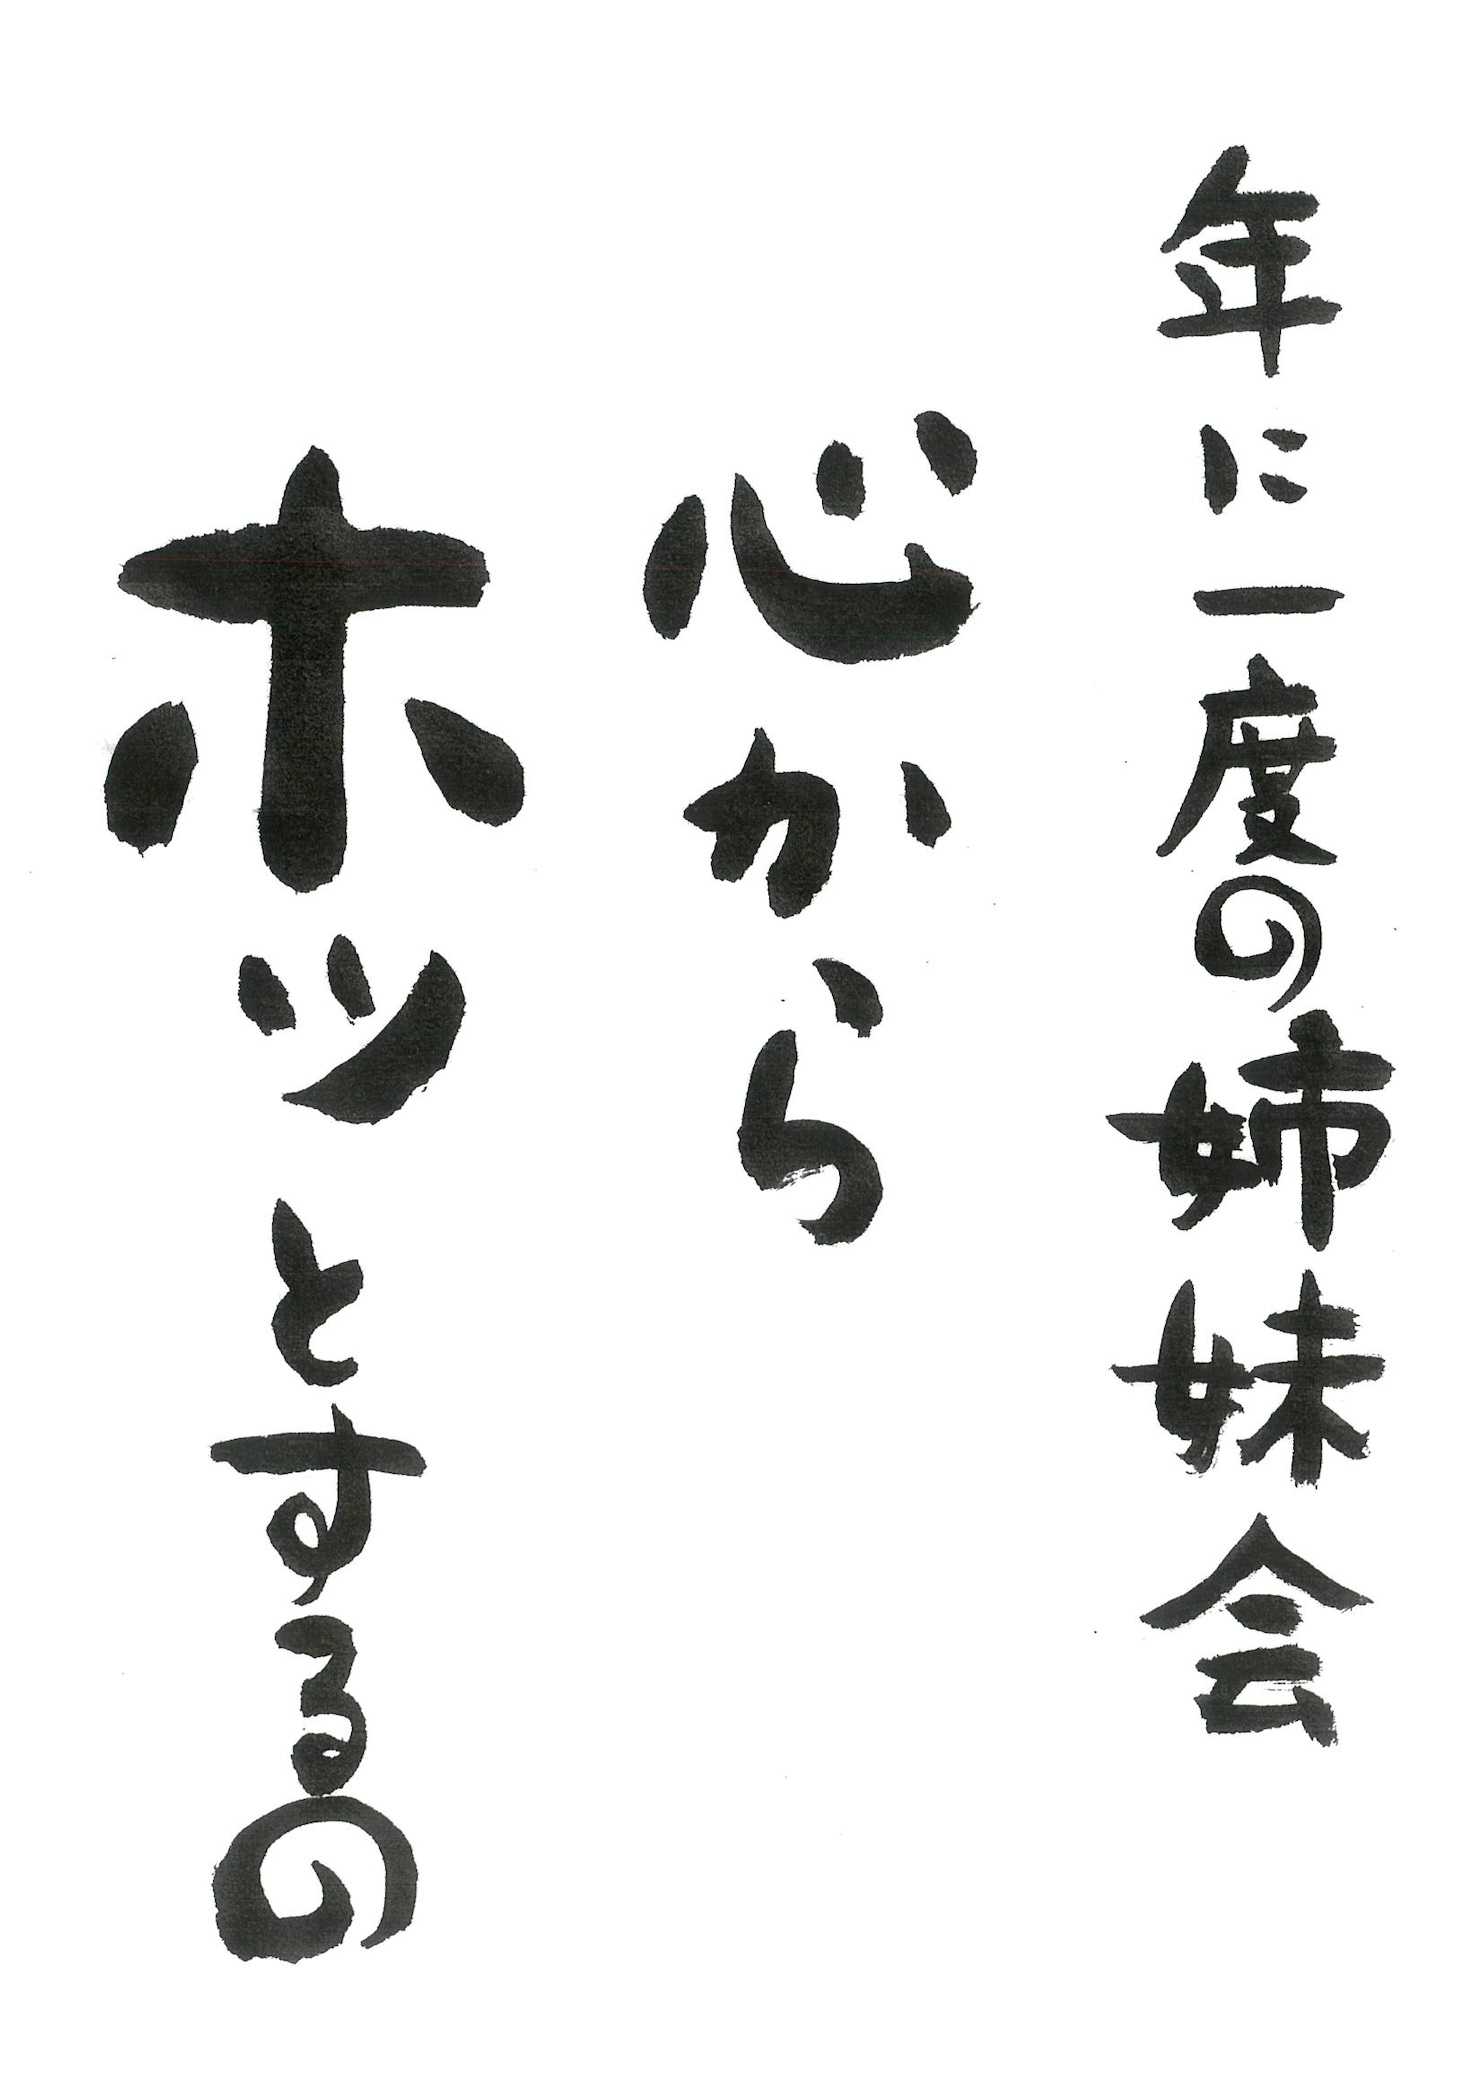 年に一度の姉妹会
心から
ホッとするの